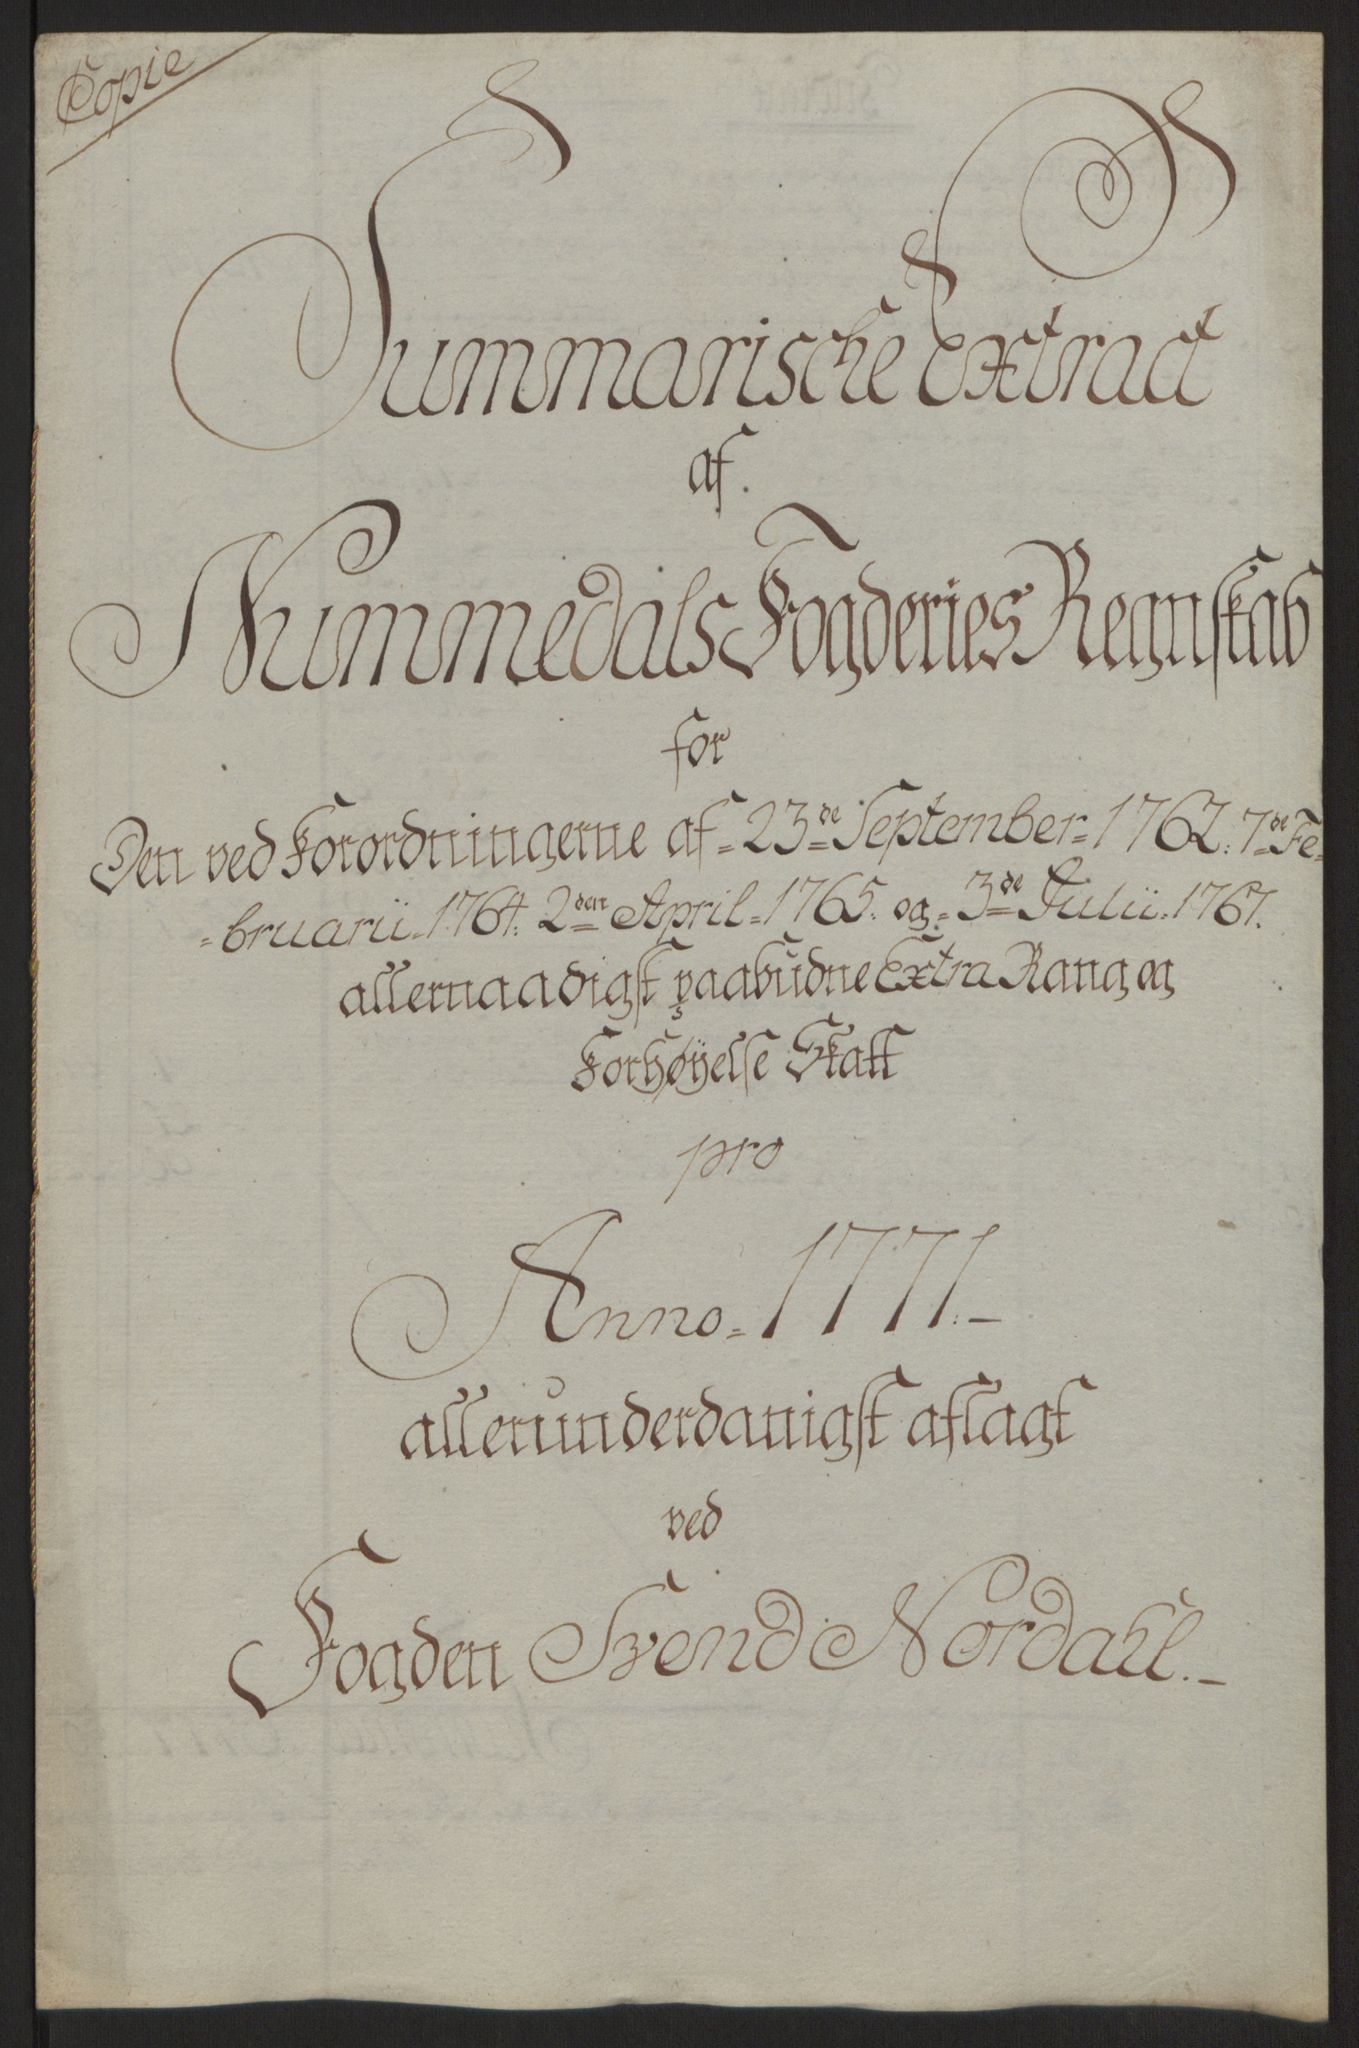 Copie
Summarische Extract
af
Nummedals Fogderies Regnskab
for
Den ved Forordningerne af 23de September 1762. 7de Fe-
-bruarii 1764. 2den April 1765. og 3de Julii 1767.
allernaadigst paabudne Extra Rang og
Forhøyelse Skatt
pro
Anno 1771.
allerunderdanigst aflagt
ved
Fogden Svend Nordahl.